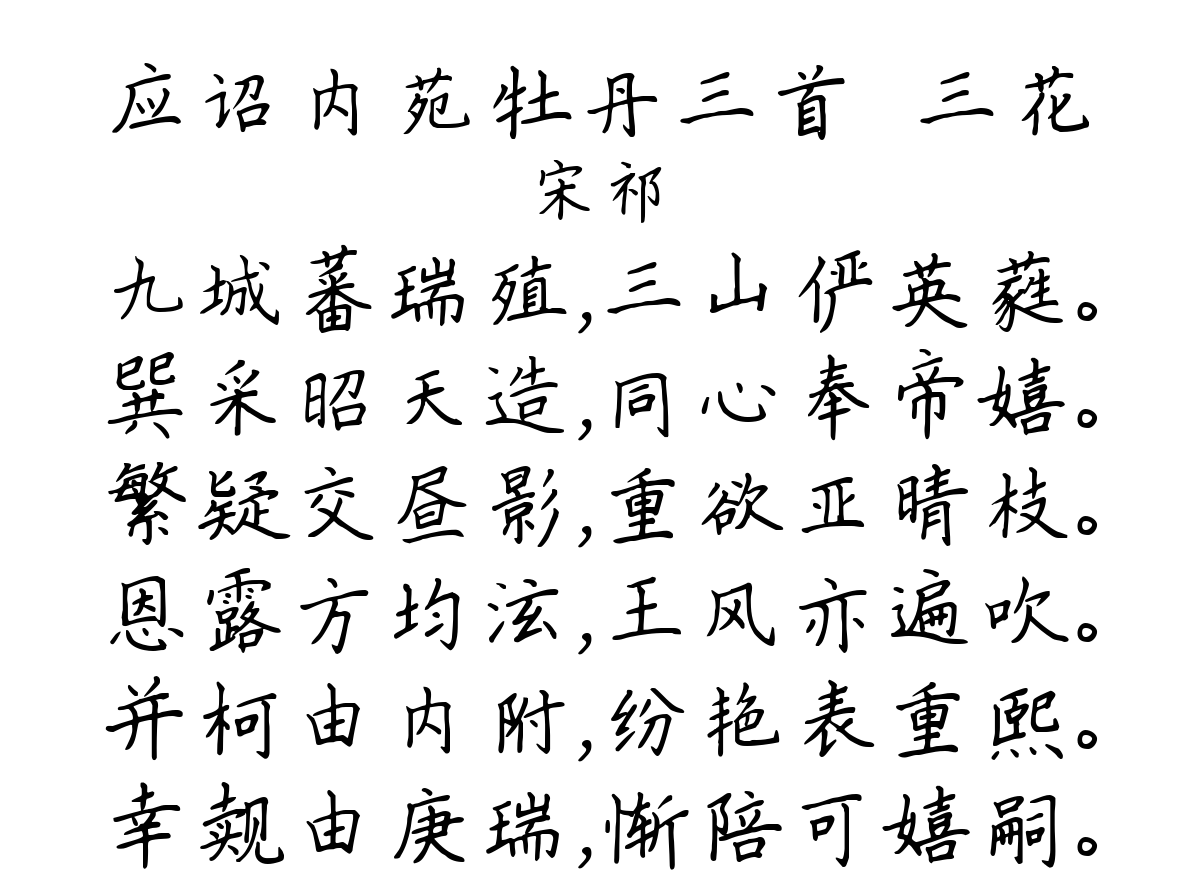 应诏内苑牡丹三首 三花
宋祁
九城蕃瑞殖,三山俨英蕤。
巽采昭天造,同心奉帝嬉。
繁疑交昼影,重欲亚晴枝。
恩露方均泫,王风亦遍吹。
并柯由内附,纷艳表重熙。
幸觌由庚瑞,惭陪可嬉嗣。